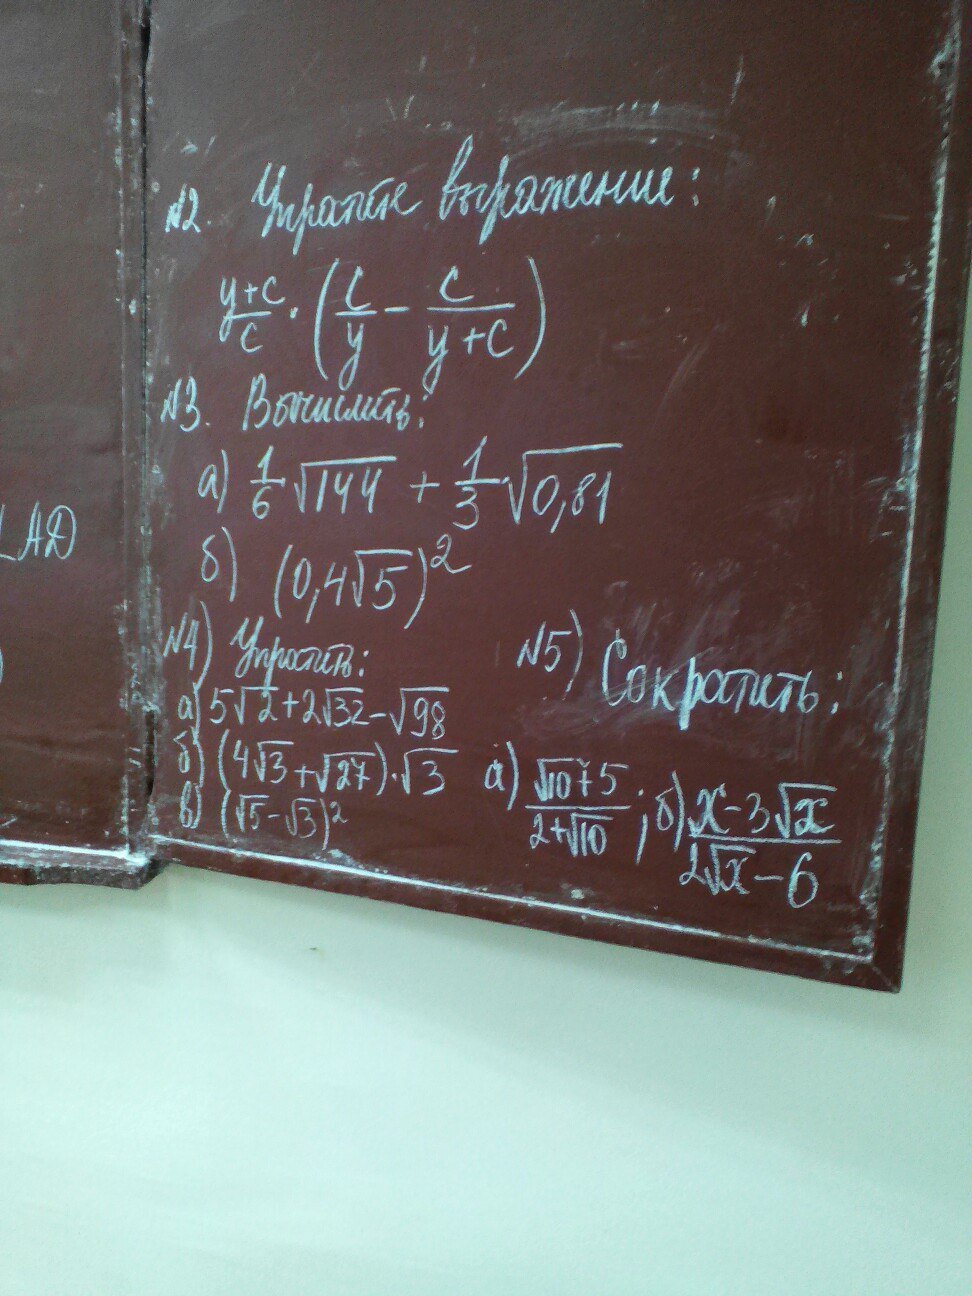 ∠AD
)
№2. Упростите выражение:
(y+c)/c · (c/y − c/(y+c))
№3. Вычислить:
а) 1/6 √144 + 1/3 √0,81
б) (0,4√5)²
№4) Упростить:
а) 5√2 + 2√32 − √98
б) (4√3 + √27) · √3
в) (√5 − √3)²
№5) Сократить:
а) (√10 + 5)/(2 + √10) ; б) (x − 3√x)/(2√x − 6)